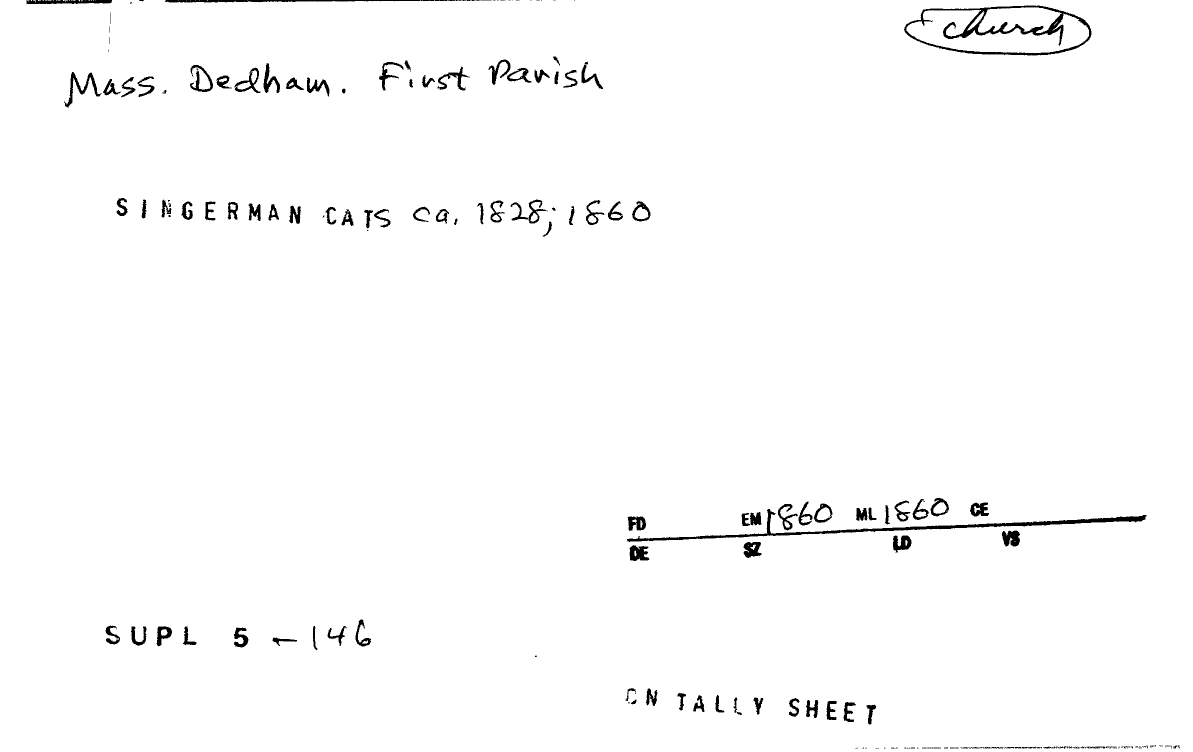 church
Mass. Dedham. First Parish
SINGERMAN CATS ca. 1828; 1860
FD EM 1860 ML 1860 CE
DE SZ LD VS
SUPL 5 - 146
ON TALLY SHEET